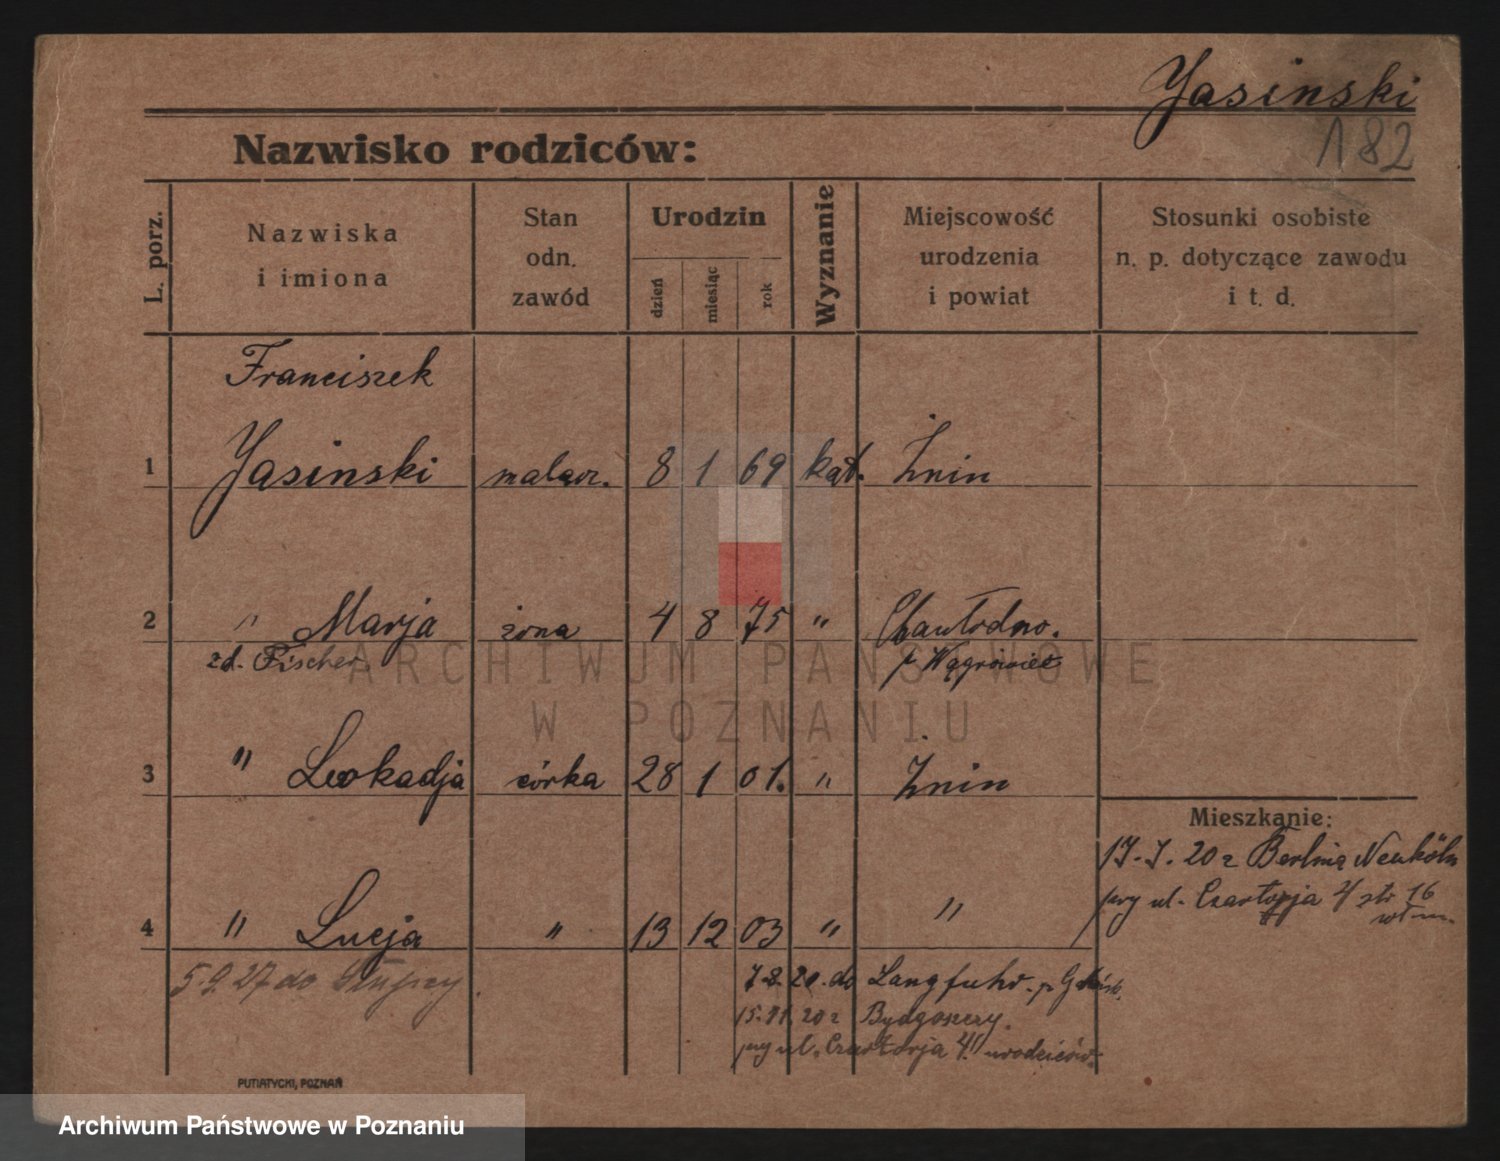 Yasinski
182
Nazwisko rodziców:
L. porz.
Nazwiska
i imiona
Stan
odn.
zawód
Urodzin
dzień
miesiąc
rok
Wyznanie
Miejscowość
urodzenia
i powiat
Stosunki osobiste
n. p. dotyczące zawodu
i t. d.
Franciszek
1 Yasinski malarz. 8 1 69 kat. Żnin
2 " Marja żona 4 8 75 "
zd. Fischer. p Wągrowiec
3 " Leokadja córka 28 1 01. " Żnin
Mieszkanie:
17.7.20 z Berlina Neuköln
przy ul. Czartorja str 16
4 " Lucja " 13 12 03 " "
5.9.27 do Słupczy.
7.8.20. do Langfuhr. p Gdańsk.
15.11.20 z Bydgoszczy.
przy ul. Czartorja 4. u rodziców.
PUTIATYCKI, POZNAŃ
ARCHIWUM PAŃSTWOWE
W POZNANIU
Archiwum Państwowe w Poznaniu